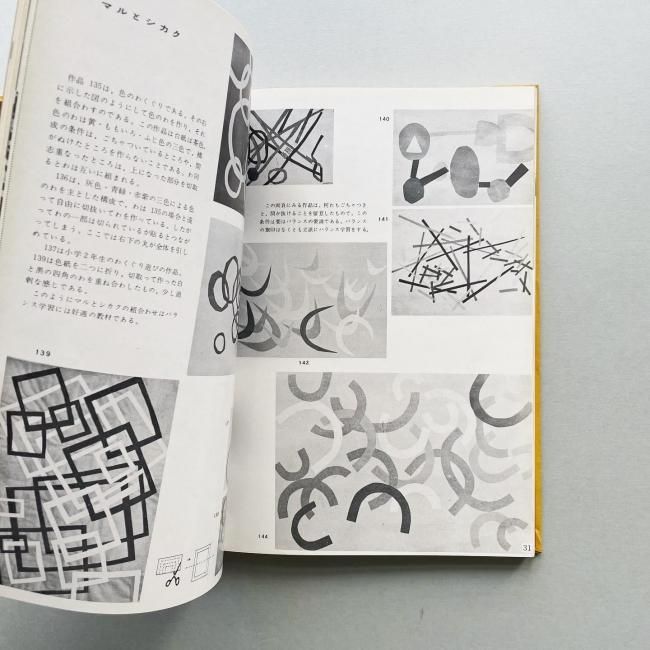 マルとシカク
作品 135は，色のわくぐりである。その右
に示した図のようにして色のわを作り，それ
を組合わすのである。この作品は台紙は茶色，
色のわは黄・ももいろ・ふじ色の三色で，構
成の条件は，ごちゃついているところや，間
がぬけたところを作らないことである。わ同
志重なったところは，上になった部分を切取
るとわは互いに組まれる。
136は，灰色・青緑・赤紫の三色による色
のわを主とした構成で，わは 135の場合と違
って自由に切抜いてわを作っている。したが
ってわの一部は切られているが貼るとつなが
ってしまう。ここでは右下の丸が全体を引し
めている。
137は小学2年生のわくぐり遊びの作品。
139は色紙を二つに折り，切取って作った白
と黒の四角のわを重ね合わしたもの。少し過
剰な感じである。
このようにマルとシカクの組合わせはバラ
ンス学習には好適の教材である。
139
140
この両頁にみる作品は，何れもごちゃつき
と，間が抜けることを留意したもので，この
条件は要はバランスの要請である。バランス
の無印はなくとも立派にバランス学習をする。
141
142
144
31